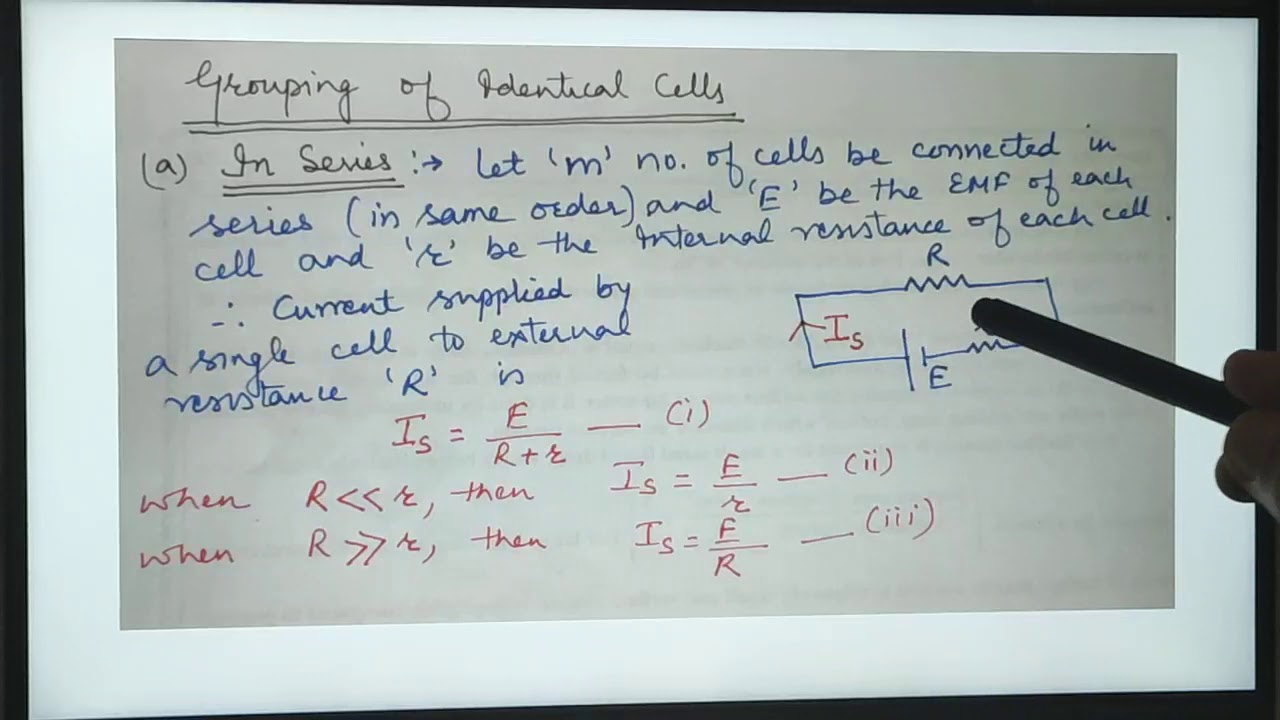 Grouping of Identical Cells
(a) In Series :→ Let 'm' no. of cells be connected in
series (in same order) and 'E' be the EMF of each
cell and 'r' be the Internal resistance of each cell.
∴ Current supplied by
a single cell to external
resistance 'R' is
R
I_S
E
I_S = E/(R+r) — (i)
when R<<r, then I_S = E/r — (ii)
when R>>r, then I_S = E/R — (iii)